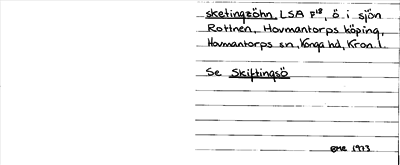 sketingsöhn, LSA F18, ö. i sjön
Rottnen, Hovmantorps köping,
Hovmantorps sn, Konga hd, Kron. l.
Se Skiftingsö
1973